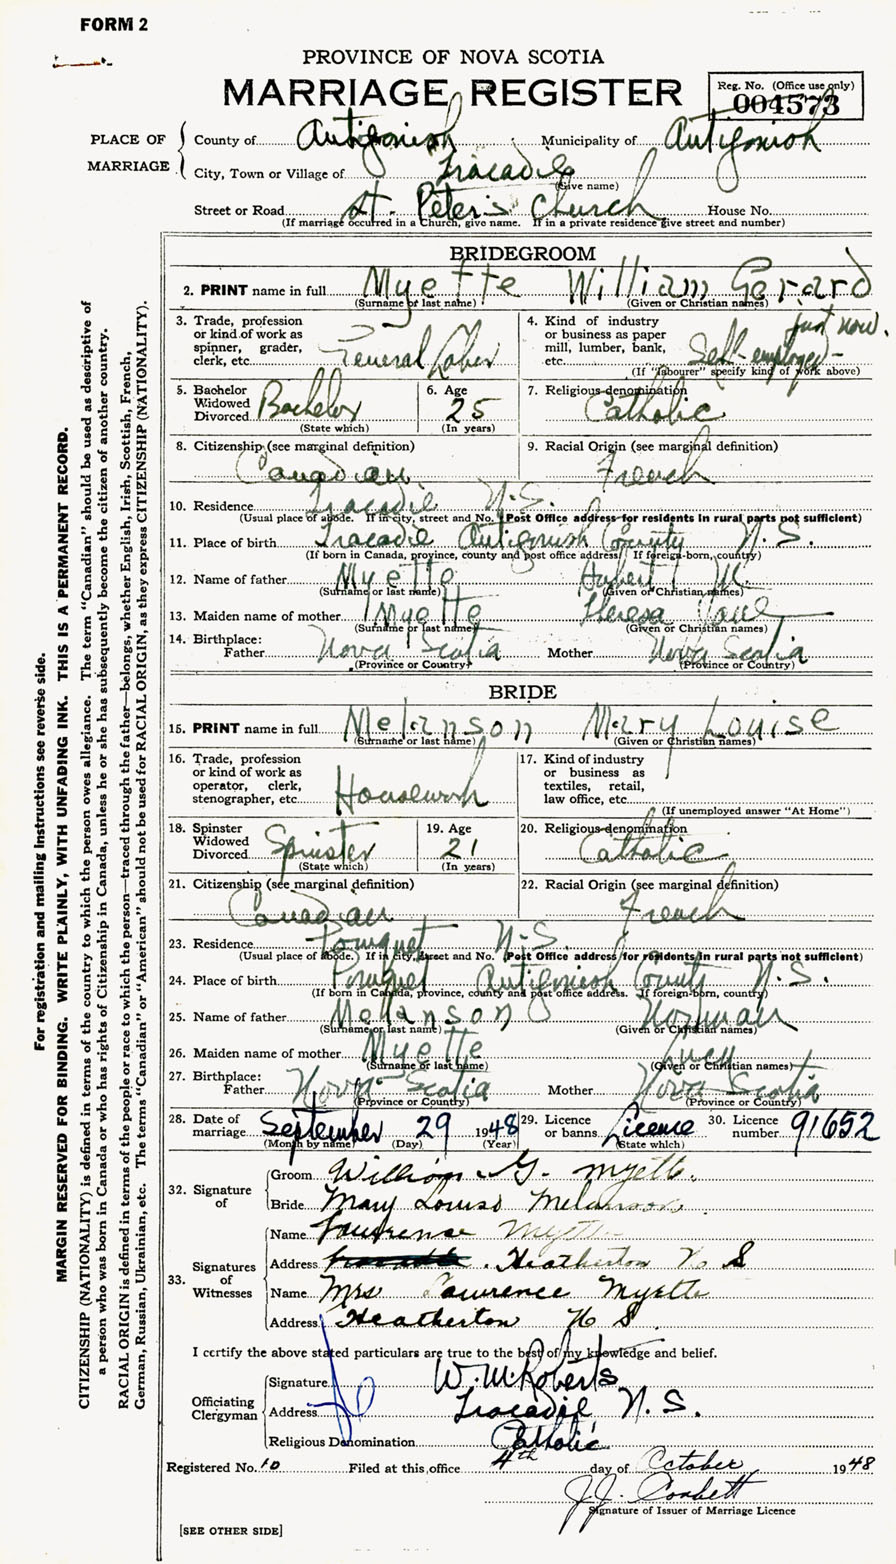 FORM 2
PROVINCE OF NOVA SCOTIA
MARRIAGE REGISTER
Reg. No. (Office use only)
004573
PLACE OF MARRIAGE
County of Antigonish Municipality of Antigonish
City, Town or Village of Tracadie
(Give name)
Street or Road St. Peter's Church House No.
(If marriage occurred in a Church, give name. If in a private residence give street and number)
BRIDEGROOM
2. PRINT name in full Myette William Gerard
(Surname or last name) (Given or Christian names)
3. Trade, profession or kind of work as spinner, grader, clerk, etc. General Labor
4. Kind of industry or business as paper mill, lumber, bank, etc. Self-employed - just now.
(If "labourer" specify kind of work above)
5. Bachelor Widowed Divorced Bachelor
(State which)
6. Age 25
(In years)
7. Religious denomination Catholic
8. Citizenship (see marginal definition) Canadian
9. Racial Origin (see marginal definition) French
10. Residence Tracadie N.S.
(Usual place of abode. If in city, street and No. Post Office address for residents in rural parts not sufficient)
11. Place of birth Tracadie Antigonish County N.S.
(If born in Canada, province, county and post office address. If foreign-born, country)
12. Name of father Myette Hubert M.
(Surname or last name) (Given or Christian names)
13. Maiden name of mother Myette Theresa
(Surname or last name) (Given or Christian names)
14. Birthplace: Father Nova Scotia Mother Nova Scotia
(Province or Country) (Province or Country)
BRIDE
15. PRINT name in full Melanson Mary Louise
(Surname or last name) (Given or Christian names)
16. Trade, profession or kind of work as operator, clerk, stenographer, etc. Housework
17. Kind of industry or business as textiles, retail, law office, etc.
(If unemployed answer "At Home")
18. Spinster Widowed Divorced Spinster
(State which)
19. Age 21
(In years)
20. Religious denomination Catholic
21. Citizenship (see marginal definition) Canadian
22. Racial Origin (see marginal definition) French
23. Residence Pomquet N.S.
(Usual place of abode. If in city, street and No. Post Office address for residents in rural parts not sufficient)
24. Place of birth Pomquet Antigonish County N.S.
(If born in Canada, province, county and post office address. If foreign-born, country)
25. Name of father Melanson Norman
(Surname or last name) (Given or Christian names)
26. Maiden name of mother Myette Lucy
(Surname or last name) (Given or Christian names)
27. Birthplace: Father Nova Scotia Mother Nova Scotia
(Province or Country) (Province or Country)
28. Date of marriage September 29 1948
(Month by name) (Day) (Year)
29. Licence or banns License
(State which)
30. Licence number 91652
32. Signature of
Groom William G. Myette.
Bride Mary Louise Melanson
33. Signatures of Witnesses
Name Lawrense Myette
Address Heatherton N S
Name Mrs Lawrence Myette
Address Heatherton N S
I certify the above stated particulars are true to the best of my knowledge and belief.
Officiating Clergyman
Signature W. M. Roberts
Address Tracadie, N.S.
Religious Denomination Catholic
Registered No. 10 Filed at this office 4th day of October 1948
J.J. Corbett
Signature of Issuer of Marriage Licence
[SEE OTHER SIDE]
For registration and mailing Instructions see reverse side.
MARGIN RESERVED FOR BINDING. WRITE PLAINLY, WITH UNFADING INK. THIS IS A PERMANENT RECORD.
CITIZENSHIP (NATIONALITY) is defined in terms of the country to which the person owes allegiance. The term "Canadian" should be used as descriptive of
a person who was born in Canada or who has rights of Citizenship in Canada, unless he or she has subsequently become the citizen of another country.
RACIAL ORIGIN is defined in terms of the people or race to which the person—traced through the father—belongs, whether English, Irish, Scottish, French,
German, Russian, Ukrainian, etc. The terms "Canadian" or "American" should not be used for RACIAL ORIGIN, as they express CITIZENSHIP (NATIONALITY).